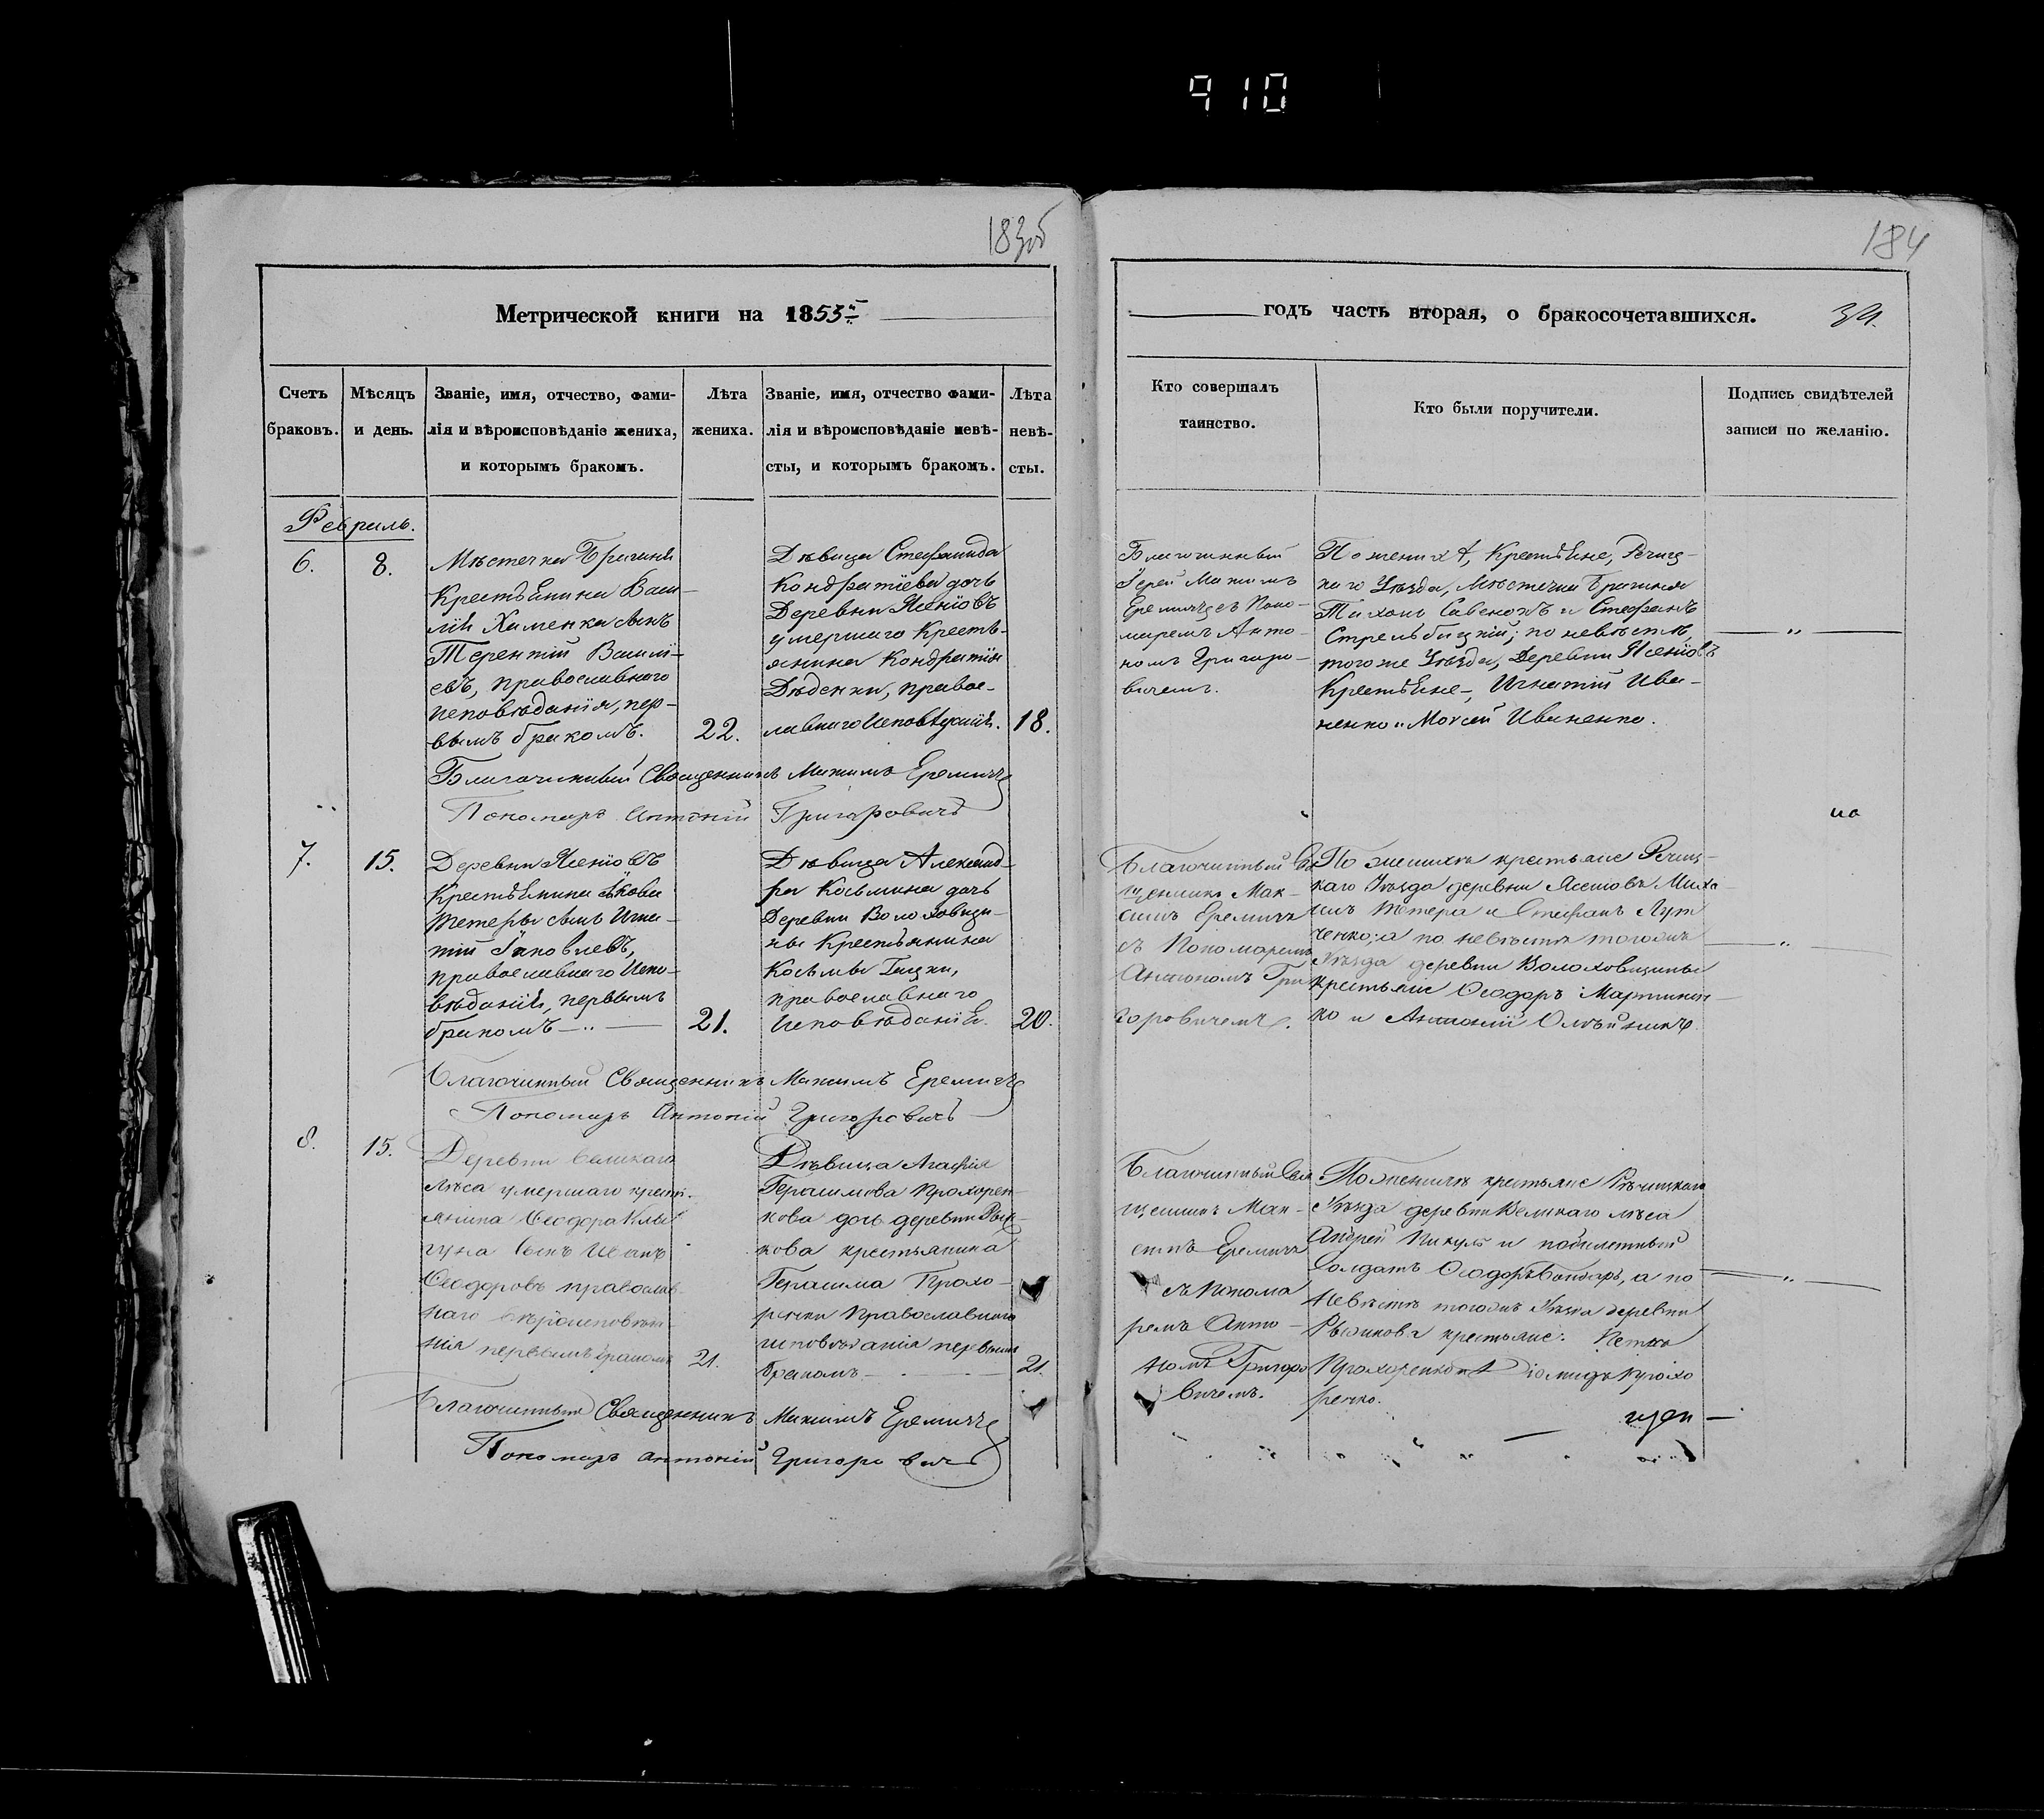 910
183об
184
Метрической книги на 1853й
годъ часть вторая, о бракосочетавшихся.
34.
Счетъ
браковъ.
Мѣсяцъ
и день.
Званіе, имя, отчество, фами-
лія и вѣроисповѣданіе жениха,
и которымъ бракомъ.
Лѣта
жениха.
Званіе, имя, отчество фами-
лія и вѣроисповѣданіе невѣ-
сты, и которымъ бракомъ.
Лѣта
невѣ-
сты.
Кто совершалъ
таинство.
Кто были поручители.
Подпись свидѣтелей
записи по желанію.
Февраль.
6.
8.
Мѣстечка Брагиня
Крестьянина Васи-
лія Хименка сынъ
Терентій Василі-
евъ, православнаго
исповѣданія, пер-
вымъ бракомъ.
22.
Дѣвица Стефанида
Кондратіева дочь
Деревни Ясеніовъ
умершаго Кресть-
янина Кондратія
Дѣденки, правос-
лавнаго Исповѣданія.
18.
Благочинный
Іерей Максимъ
Еремичъ съ Поно-
маремъ Анто-
номъ Григоро-
вичемъ.
По женихѣ, Крестьяне, Речиц-
каго Уѣзда, Мѣстечка Брагиня
Тихонъ Савенокъ и Стефанъ
Стрельбицкій; по невѣстѣ,
того же Уѣзда, Деревни Ясеніовъ
Крестьяне, Игнатій Ива-
ненко и Моѵсей Иваненко.
Благочинный Священникъ Максимъ Еремичъ
Пономарь Антоній Григоровичъ
7.
15.
Деревни Ясеніовъ
Крестьянина Якова
Тетеры сынъ Игна-
тій Іаковлевъ,
православнаго Испо-
вѣданія, первымъ
бракомъ
21.
Дѣвица Александ-
ра Косьмина дочь
Деревни Волоховщи-
ны Крестьянина
Косьмы Гицки,
православнаго
Исповѣданія.
20.
Благочинный Свя
щенникъ Мак-
симъ Еремичъ
съ Пономаремъ
Антономъ Гри
горовичемъ.
По женихѣ крестьяне Речиц-
каго Уѣзда деревни Ясеніовъ Миха
илъ Тетера и Стефанъ Лут
ченко; а по невѣстѣ тогожъ
Уѣзда деревни Волоховщины
крестьяне Ѳеодоръ Мартинен-
ко и Антоній Олѣйникъ.
Благочинный Священникъ Максимъ Еремичъ
Пономарь Антоній Григоровичъ
8.
15.
Деревни Великаго
лѣса умершаго кресть-
янина Ѳеодора
сынъ Иванъ
Ѳеодоровъ православ-
наго вѣроисповѣда-
нія первымъ бракомъ
21.
Дѣвица Агафія
Герасимова Прохорен-
кова дочь деревни Рын-
кова крестьянина
Герасима Прохо-
ренки Православнаго
исповѣданія первымъ
бракомъ
21.
Благочинный Свя
щенникъ Мак-
симъ Еремичъ
съ Понома
ремъ Анто-
номъ Григоро
вичемъ.
По женихѣ крестьяне Рѣчицкаго
Уѣзда деревни Великаго лѣса
Андрей Пикуль и побилетный
Солдатъ Ѳеодоръ Бондарь, а по
Невѣстѣ тогожъ Уѣзда деревни
крестьяне:
Прохоренко и Діомидъ Прохо
ренко.
Благочинный Священникъ Максимъ Еремичъ
Пономарь Антоній Григоровичъ